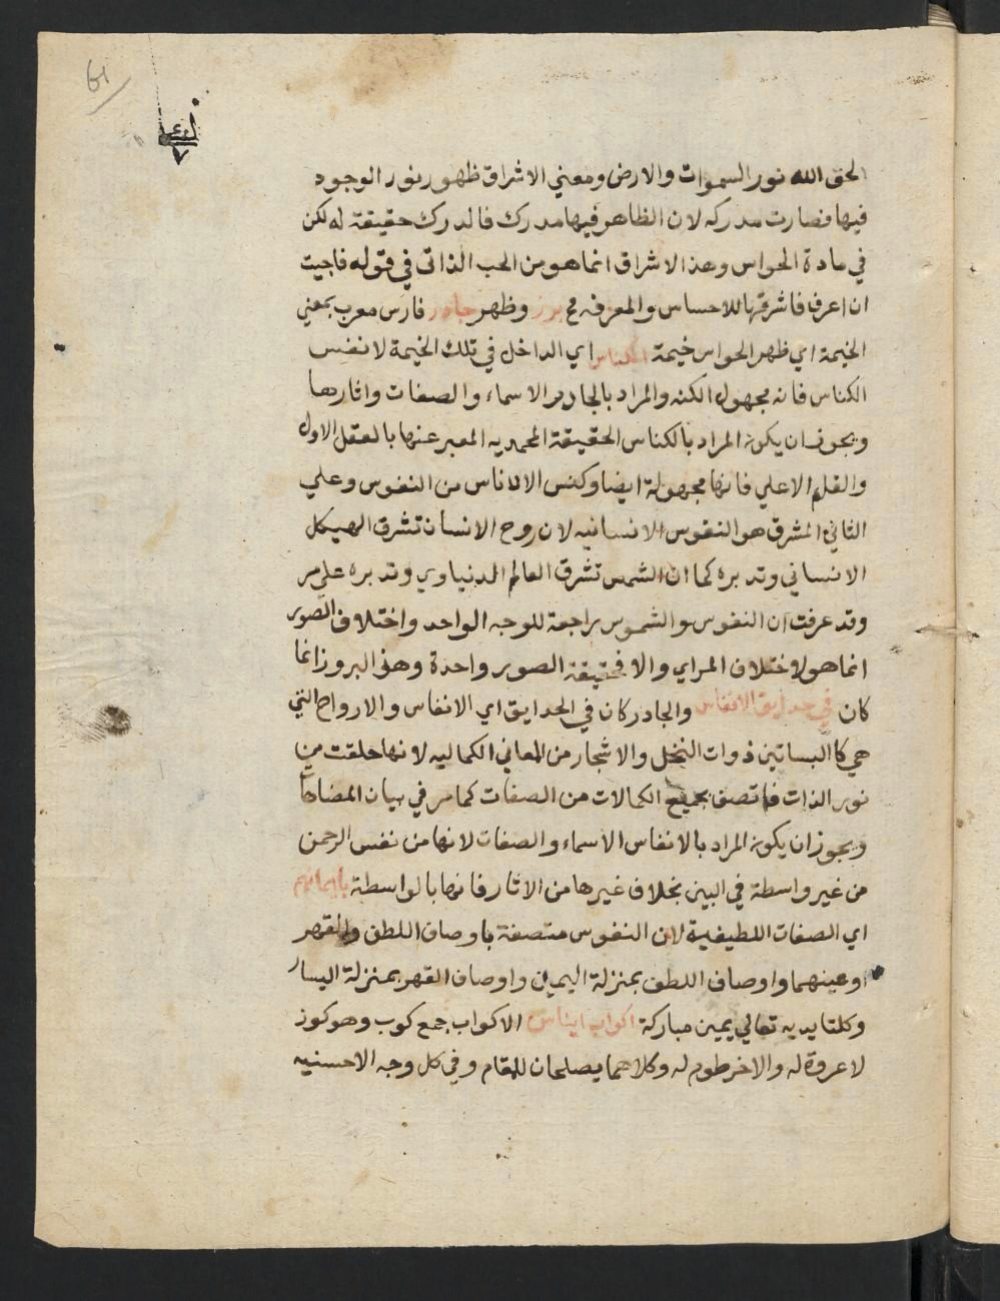 61
الحق الله نور السموات والارض ومعني الاشراق ظهور نور الوجود
فيها فصارت مدركه لان الظاهر فيها مدرك فالمدرك حقيقة له لكن
في مادة الحواس وهذا الاشراق انما هو من الحب الذاتي في قوله فاحببت
ان اعرف فاشرقها للاحساس والمعرفه برز وظهر جادر فارس معرب بمعني
الخيمة اي ظهر الحواس خيمة الكناس اي الداخل في تلك الخيمة لا نفس
الكناس فانه مجهول الكنه والمراد بالجادر الاسماء والصفات واثارها
ويجوز ان يكون المراد بالكناس الحقيقة المحمديه المعبر عنها بالعقل الاول
والقلم الاعلي فانها مجهولة ايضا وكنس الاناس من النفوس وعلي
الثاني المشرق هو النفوس الانسانيه لان روح الانسان تشرق الهيكل
الانساني وتدبره كما ان الشمس تشرق العالم الدنياوي وتدبره علي مر
وقد عرفت ان النفوس والشموس راجعة للوجه الواحد واختلاف الصور
انما هو لاختلاف المراي والا فحقيقة الصور واحدة وهذا البروز انما
كان في حدايق الانفاس والجادر كان في الحدايق اي الانفاس والارواح التي
هي كالبساتين ذوات النخل والاشجار من المعاني الكماليه لانها خلقت من
نور الذات فاتصف بجميع الكمالات من الصفات كما مر في بيان المضاهاة
ويجوز ان يكون المراد بالانفاس الاسماء والصفات لانها من نفس الرحمن
من غير واسطة في البين بخلاف غيرها من الاثار فانها بالواسطة بايمانهم
اي الصفات اللطيفية لان النفوس متصفة باوصاف اللطف والقهر
او عينهما واوصاف اللطف بمنزلة اليمين واوصاف القهر بمنزلة اليسار
وكلتا يديه تعالي يمين مباركة اكواب ايناس الاكواب جمع كوب وهو كوز
لا عروة له والاخرطوم له وكلاهما يصلحان للمقام وفي كل وجه الاحسنيه